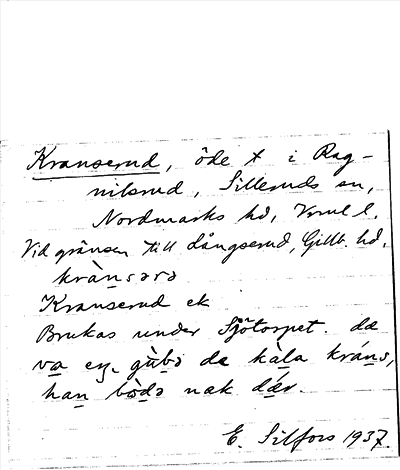 Kranserud, öde t i Rag-
nilsrud, Silleruds sn,
Nordmarks hd, Vrml l.
Vid gränsen till Långserud, Gillb. hd.
krànsərə
Kranserud ek
Brukas under Sjötorpet. dä
va en gùbə de kàla kráns,
han bòdə nak dár.
E. Silfors 1937.